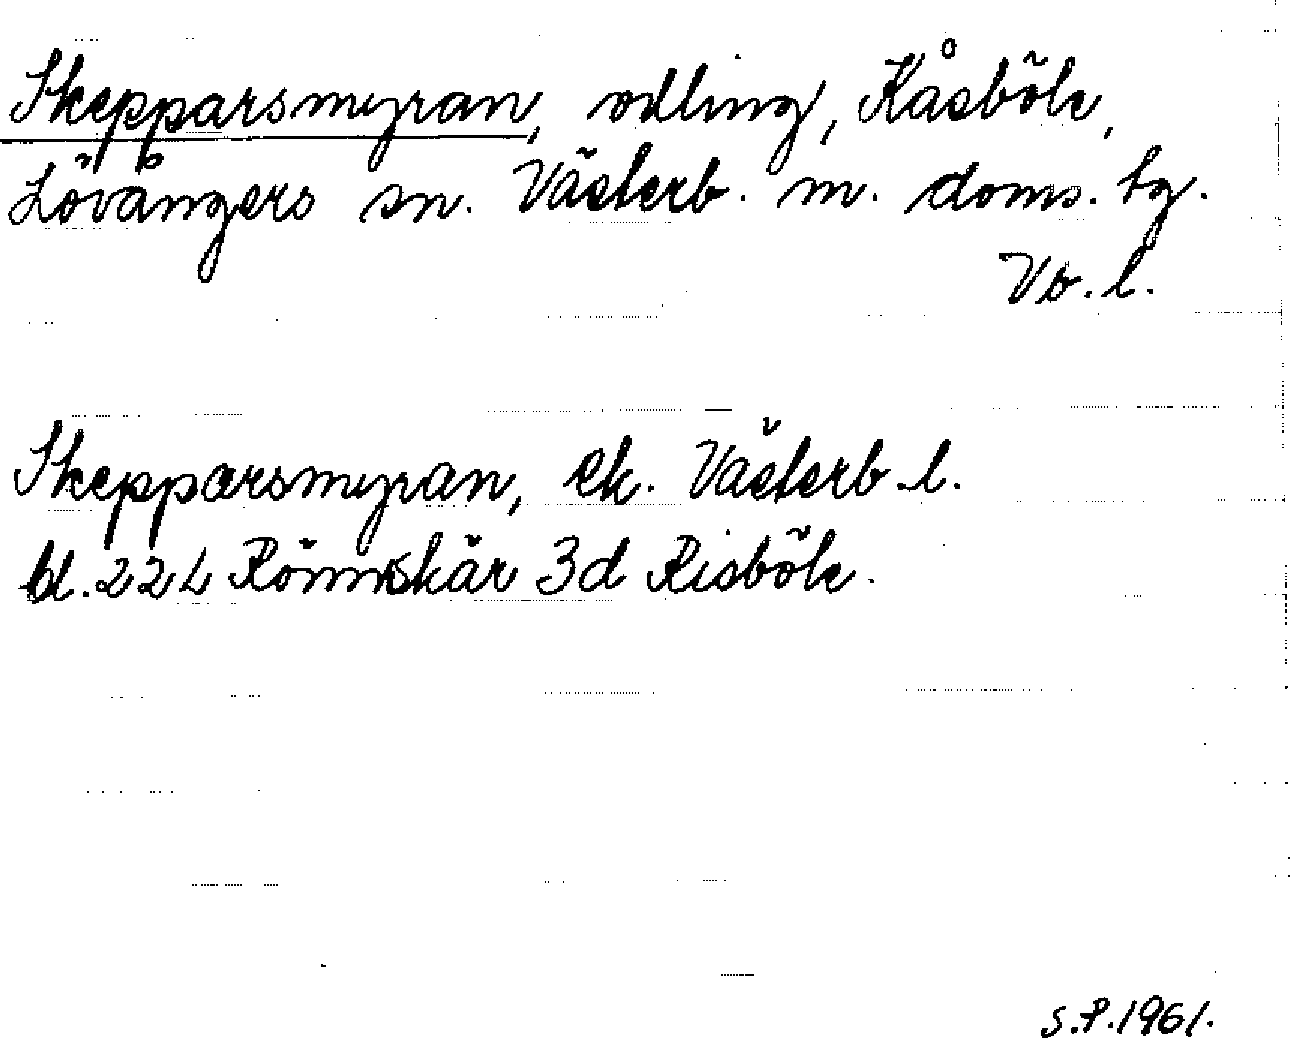 Skepparsmyran, odling, Kåsböle,
Lövångers sn. Västerb. m. doms. tg.
Vb. l.
Skepparsmyran, ek. Västerb. l.
bl. 22 L Rönnskär 3d Risböle.
S.P. 1961.